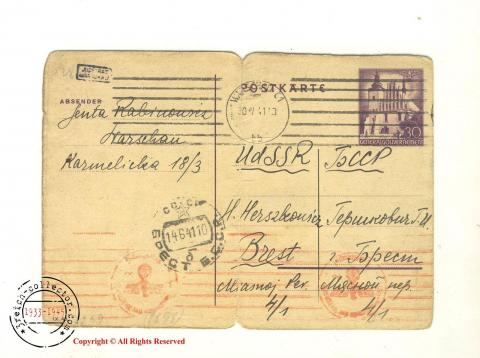 POSTKARTE
ABSENDER
Jenta Rabinowicz
Warschau
Karmelicka 18/3
30
GENERALGOUVERNEMENT
UdSSR БССР
H. Herszkowicz Гершкович Г.И.
Brest г. Брест
Miasnoj Per. Мясной пер.
4/1 4/1
14.6.41.10
3reich-collector.com
1933-1945
Copyright © All Rights Reserved